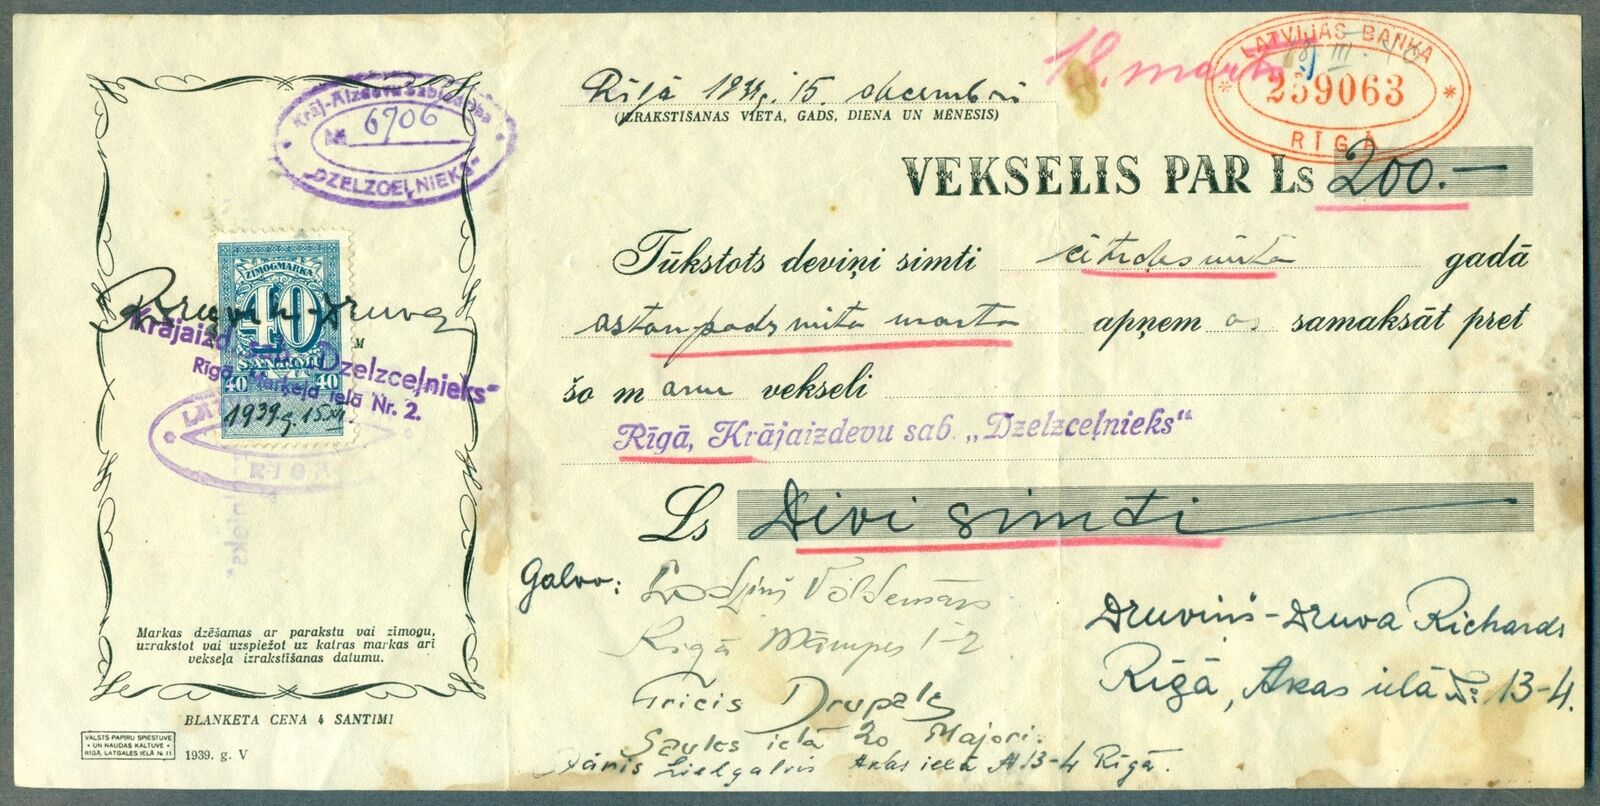 Krāj-Aizdevu Sabiedrība
№ 6706
"DZELZCEĻNIEKS"
ZIMOGMARKA
40
SANTIMU
40 40
1939.g. 15.XII.
Krājaizd. sab. "Dzelzceļnieks"
Rīgā, Marķeļa ielā Nr. 2.
RĪGĀ
Markas dzēšamas ar parakstu vai zīmogu,
uzrakstot vai uzspiežot uz katras markas arī
vekseļa izrakstīšanas datumu.
BLANKETA CENA 4 SANTIMI
VALSTS PAPIRU SPIESTUVE
• UN NAUDAS KALTUVE •
RIGĀ, LATGALES IELĀ № 11
1939. g. V
Rīgā 1939.g. 15. decembrī
(IZRAKSTĪŠANAS VIETA, GADS, DIENA UN MĒNESIS)
18. martā
LATVIJAS BANKA
18 III 40
239063
RĪGĀ
VEKSELIS PAR Ls 200.—
Tūkstots deviņi simti četrdesmitā gadā
astoņpadsmitā martā apņemos samaksāt pret
šo manu vekseli
Rīgā, Krājaizdevu sab. „Dzelzceļnieks"
Ls Divi simti
Galvo:
Voldemārs
Rīgā 1-2
Fricis Drupals
Saules ielā 20 Majori.
Jānis Lielgalvis Akas ielā № 13-4 Rīgā.
Druviņš-Druva Richards
Rīgā, Akas ielā №: 13-4.